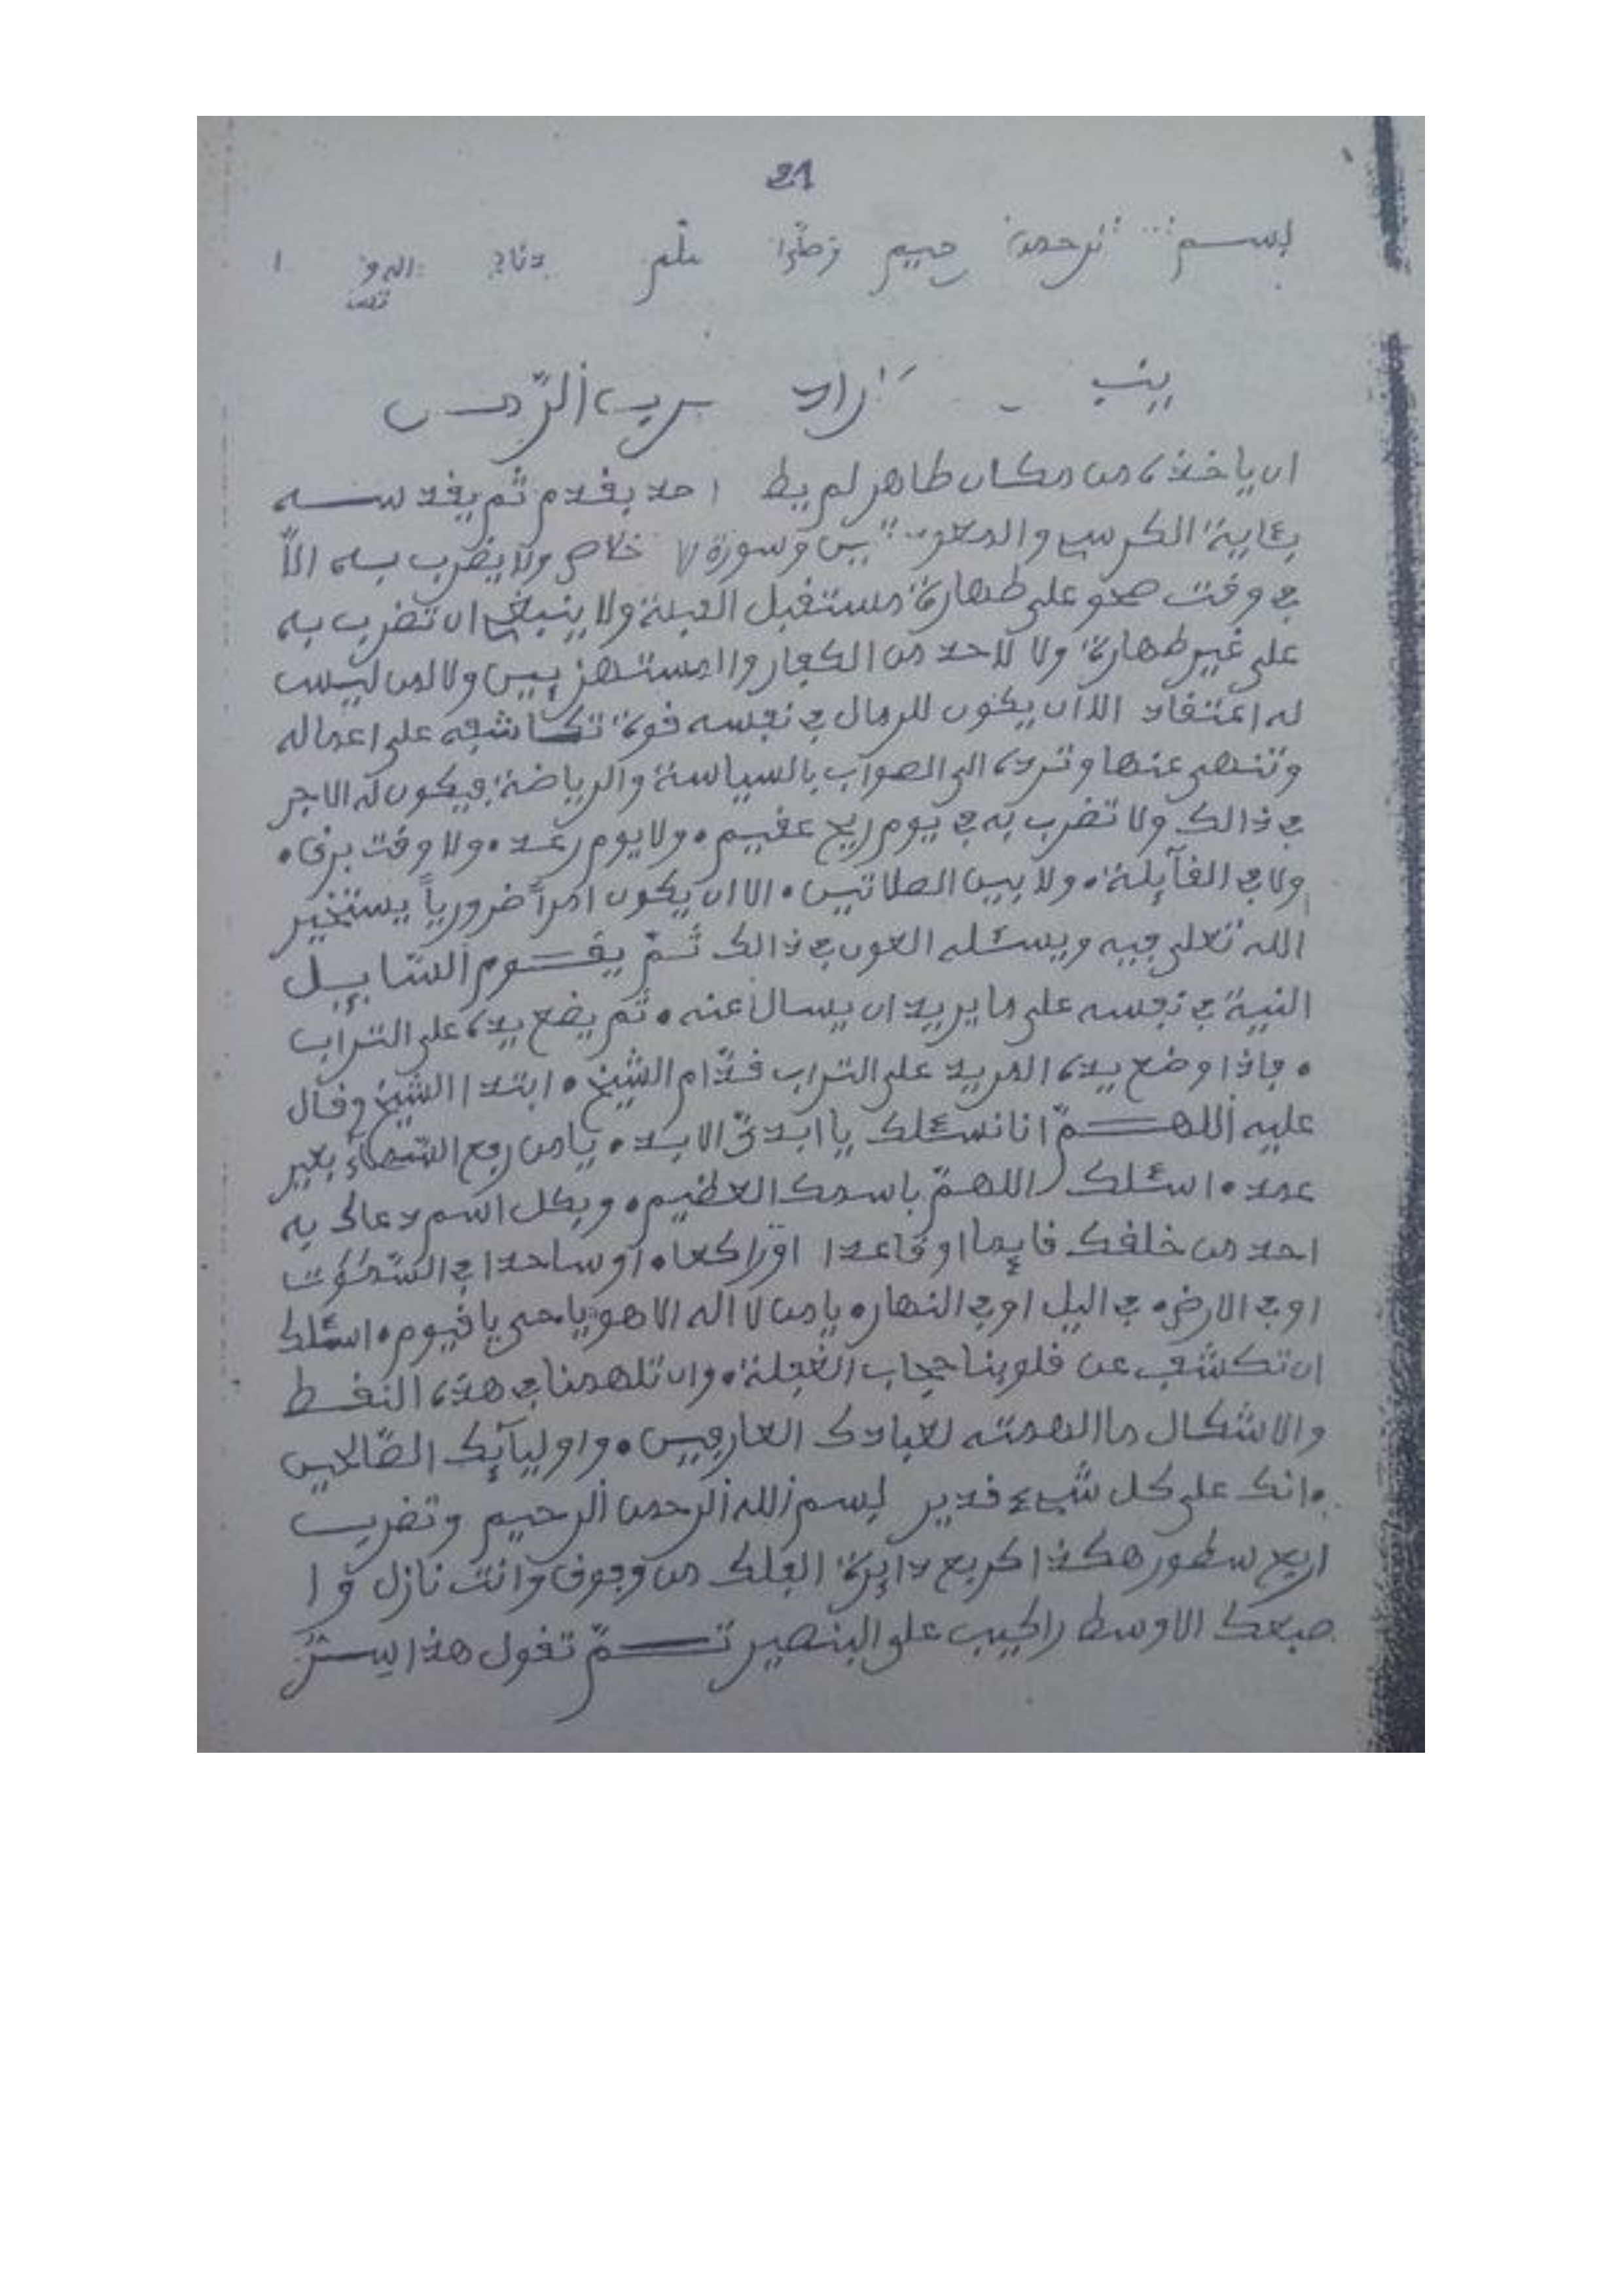 21
بسم الرحمن حيم
ينب اراد
ان ياخذه من مكان طاهر لم يط احد بقدم ثم يقد سه
بئاية الكرسي والمعو تين وسورة خلاص ولا يضرب به الاّ
في وقت صحو على طهارة مستقبل القبلة ولا ينبغي ان تضرب به
على غير طهارة ولا لاحد من الكفار والمستهزيين ولا لمن ليس
له اعتقاد الا ان يكون للرمال في نفسه قوة تكاشفه على اعماله
وتنهى عنها وترده الى الصواب بالسياسة والرياضة فيكون له الاجر
في ذالك ولا تضرب به في يوم ريح عقيم • ولا يوم رعد • ولا وقت برق •
ولا في القآيلة • ولا بين الصلاتين • الا ان يكون امراً ضرورياً يستخير
الله تعلى فيه ويسئله العون في ذالك ثمّ يقوم السّايل
النية في نفسه على ما يريد ان يسال عنه • ثم يضع يده على التراب
• فاذا وضع يده المريد على التراب قدّام الشيخ • ابتدا الشيخ وقال
عليه اللهمّ انا نسئلك يا ابديّ الابد • يا من رفع السّمآء بغير
عمد • اسئلك اللهمّ باسمك العظيم • وبكل اسم دعاك به
احد من خلقك قايما او قاعدا او راكعا • او ساجدا في السّموت
او في الارض • في اليل او في النهار • يا من لا اله الا هو يا حي يا قيوم • اسئلك
ان تكشف عن قلوبنا حجاب الغفلة • وان تلهمنا في هذه النقط
والاشكال ما الهمته لعبادك العارفين • واوليآيك الصّالحين
• انك على كل شيء قدير بسم الله الرحمن الرحيم وتضرب
اربع سطور هكذا كربع دايرة الفلك من وفوق وانت نازل وا
صبعك الاوسط راكب على البنصير ثمّ تقول هذا